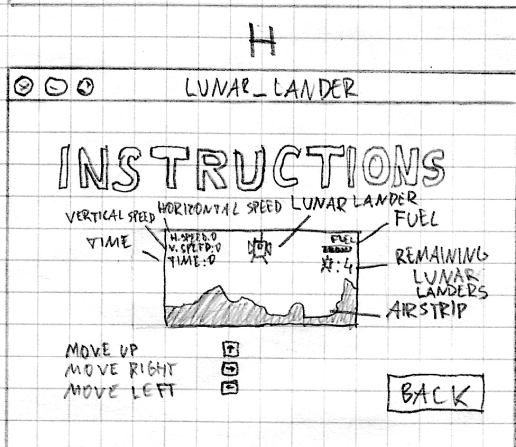 H
LUNAR_LANDER
INSTRUCTIONS
VERTICAL SPEED
HORIZONTAL SPEED
LUNAR LANDER
FUEL
TIME
H.SPEED:0
V.SPEED:0
TIME:0
FUEL
:4
REMAINING
LUNAR
LANDERS
AIRSTRIP
MOVE UP ↑
MOVE RIGHT →
MOVE LEFT ←
BACK